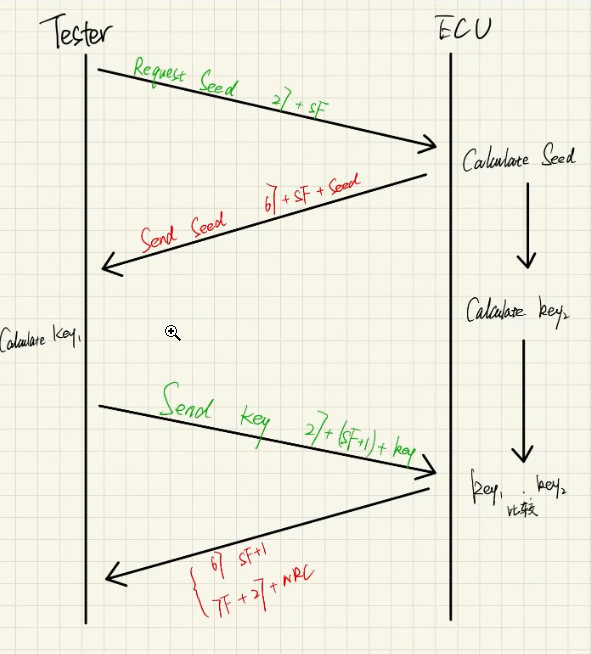 Tester
ECU
Request Seed 27+SF
Calculate Seed
67+SF+Seed
Send Seed
Calculate key₂
Calculate key₁
Send key 27+(SF+1)+key
key₁ key₂
比较
67 SF+1
7F+27+NRC